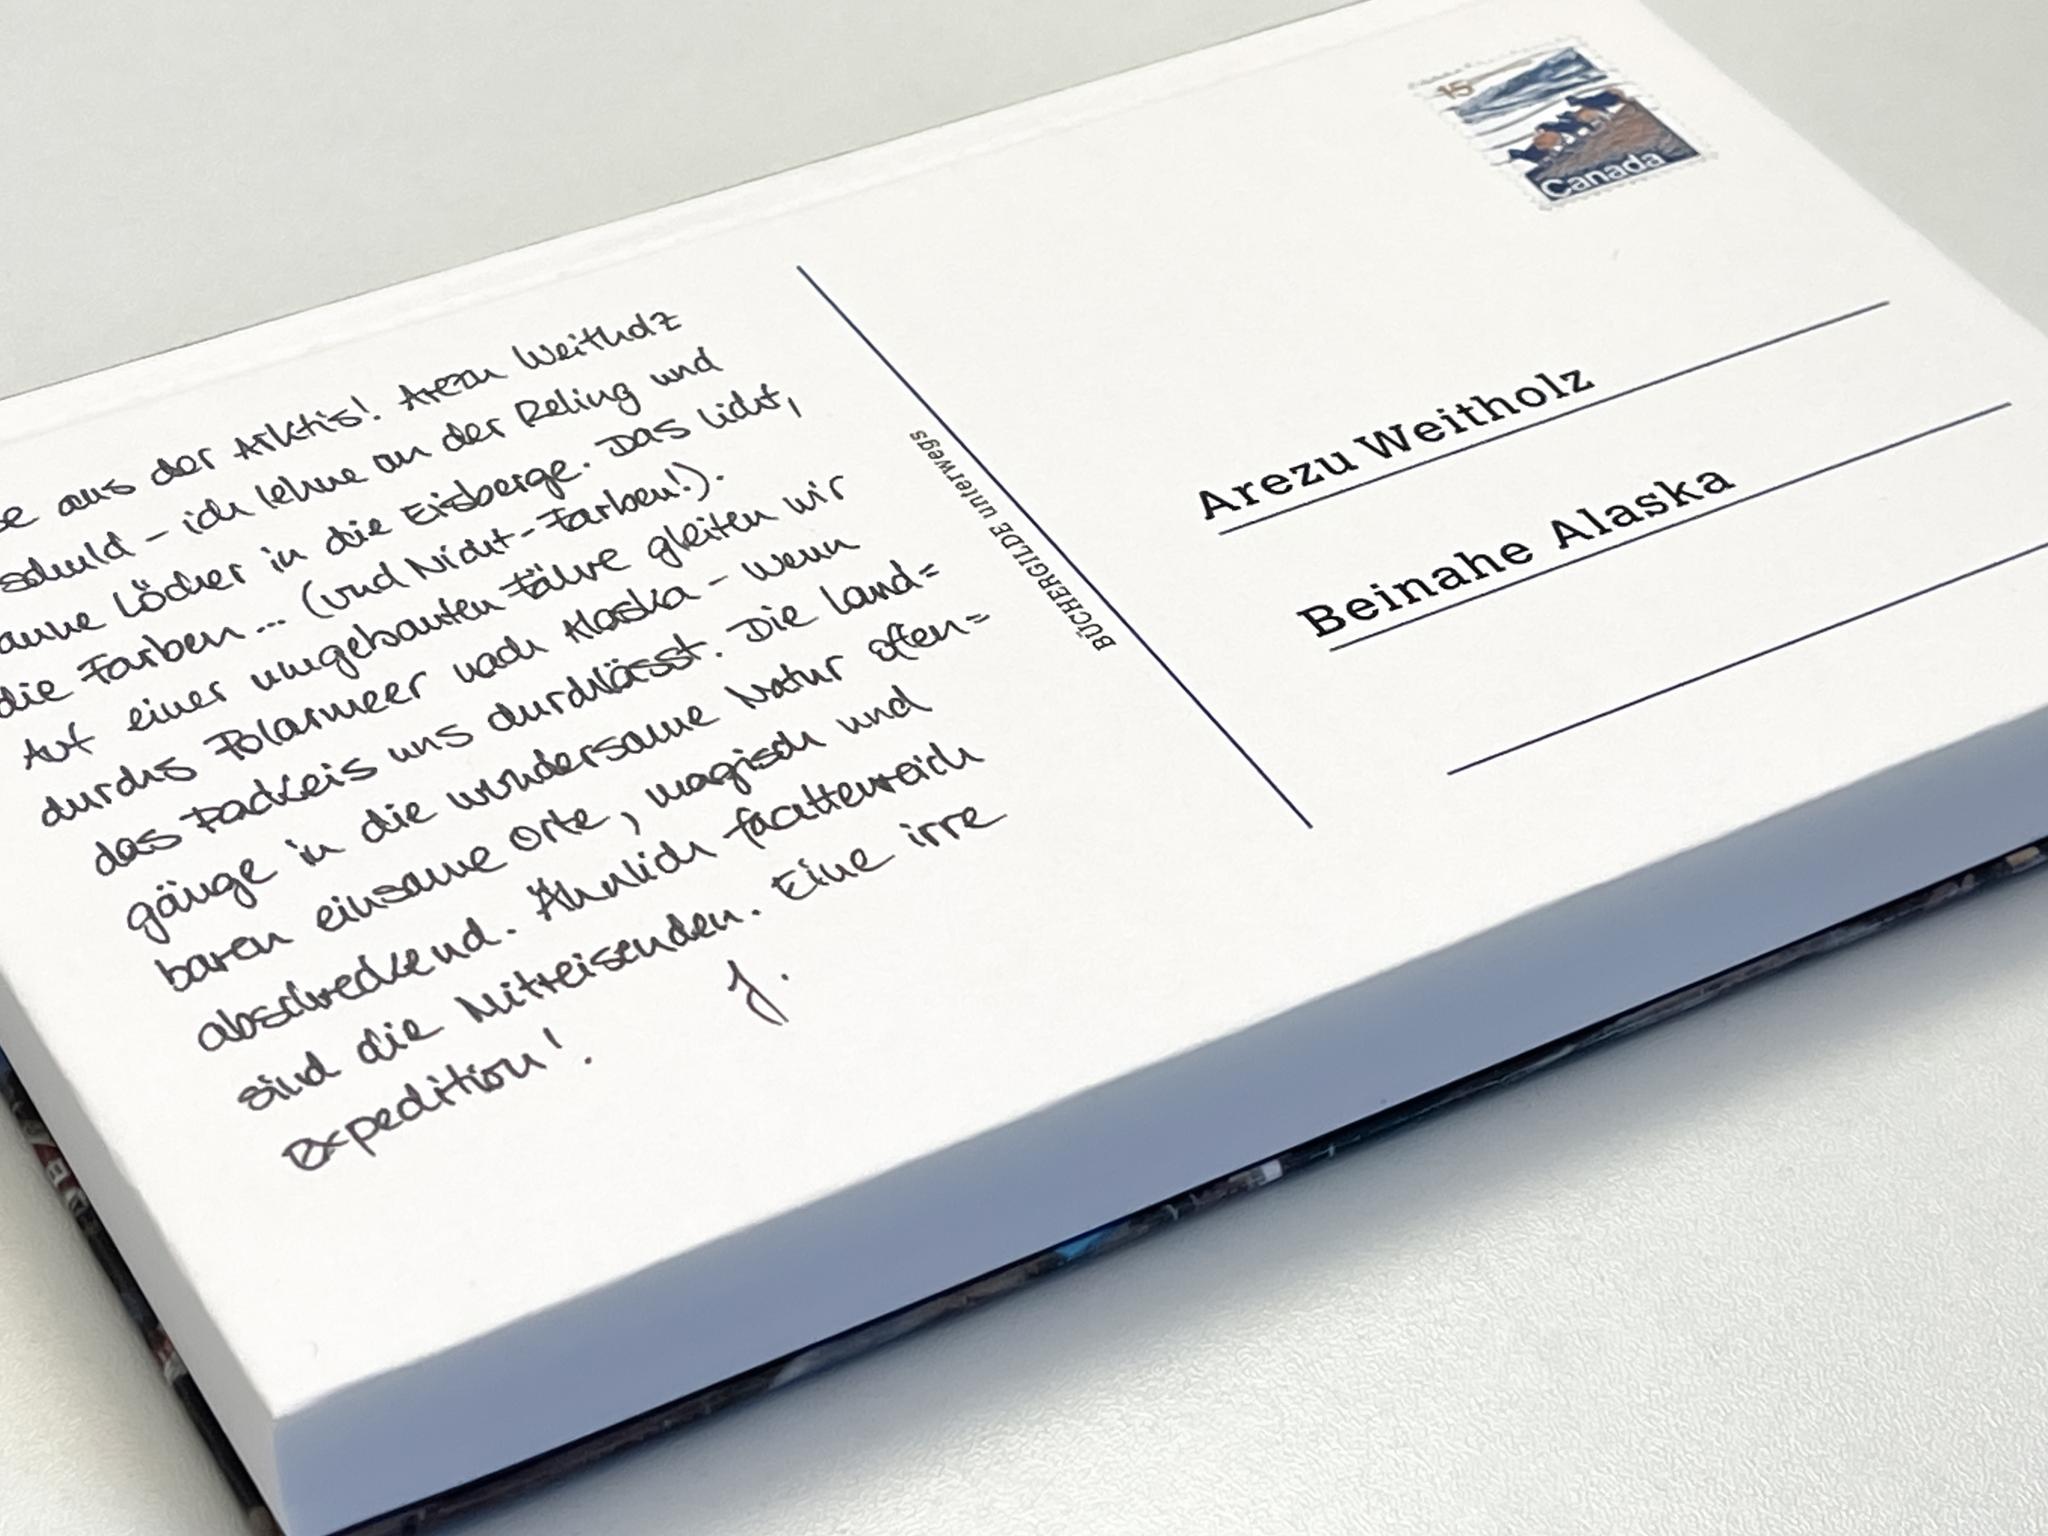 aus der Arktis! Arezu Weitholz
schuld - ich lehne an der Reling und
Löcher in die Eisberge. Das Licht,
die Farben... (und Nicht-Farben!).
Auf einer umgebauten Fähre gleiten wir
durchs Polarmeer nach Alaska - wenn
das Packeis uns durchlässt. Die Land=
gänge in die wundersame Natur offen=
baren einsame Orte, magisch und
abschreckend. Ähnlich facettenreich
sind die Mitreisenden. Eine irre
Expedition!
J.
BÜCHERGILDE unterwegs
15
Canada
Arezu Weitholz
Beinahe Alaska